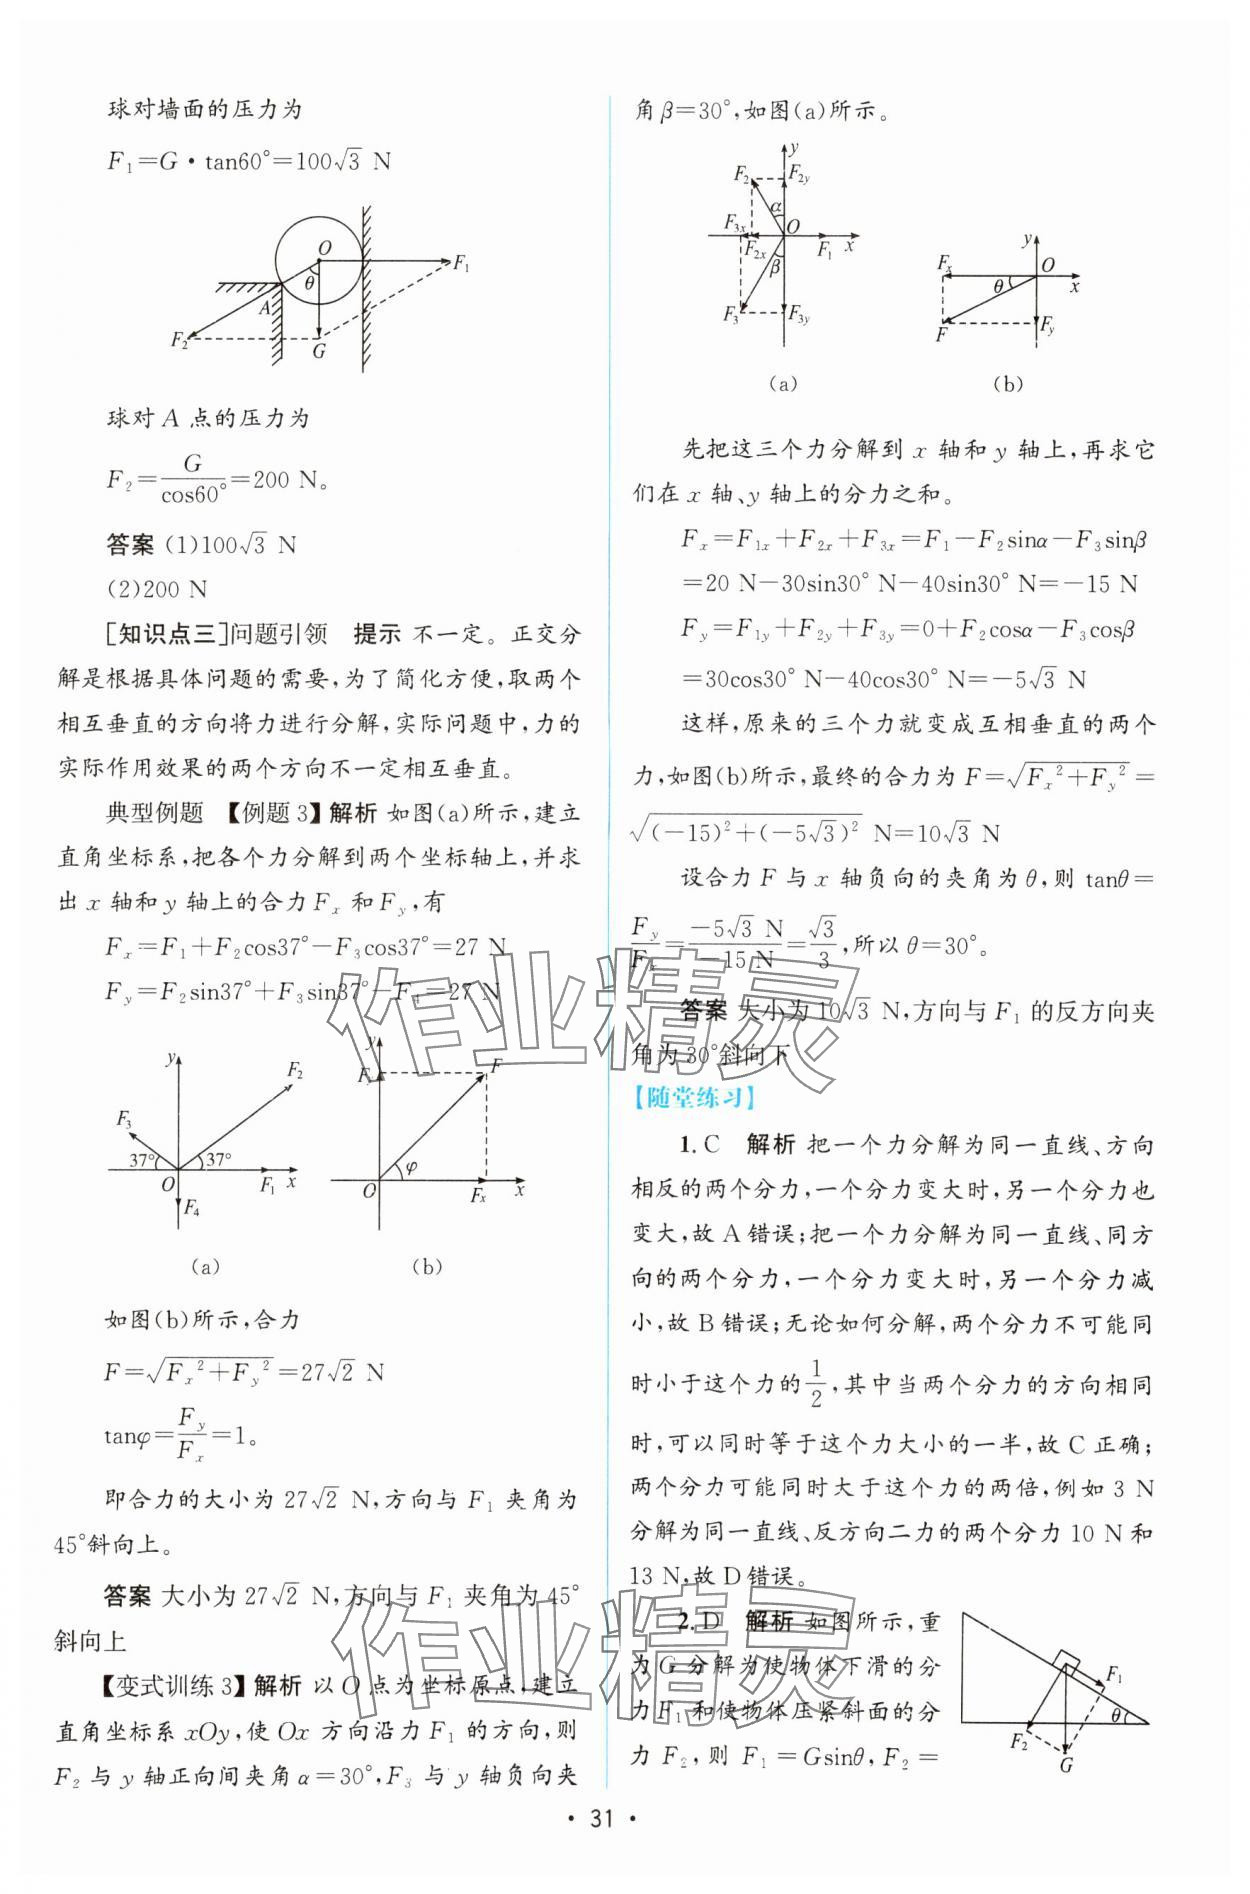 球对墙面的压力为
F₁=G·tan60°=100√3 N
O
F₁
θ
A
F₂
G
球对 A 点的压力为
F₂=G/cos60°=200 N。
答案 (1)100√3 N
(2)200 N
[知识点三]问题引领 提示 不一定。正交分
解是根据具体问题的需要,为了简化方便,取两个
相互垂直的方向将力进行分解,实际问题中,力的
实际作用效果的两个方向不一定相互垂直。
典型例题 【例题3】解析 如图(a)所示,建立
直角坐标系,把各个力分解到两个坐标轴上,并求
出 x 轴和 y 轴上的合力 Fₓ 和 F_y,有
Fₓ=F₁+F₂cos37°−F₃cos37°=27 N
F_y=F₂sin37°+F₃sin37°−F₄=27 N
y
F₂
F₃
37°
37°
O
F₁
x
F₄
(a)
y
F_y
F
φ
O
Fₓ
x
(b)
如图(b)所示,合力
F=√(Fₓ²+F_y²)=27√2 N
tanφ=F_y/Fₓ=1。
即合力的大小为 27√2 N,方向与 F₁ 夹角为
45°斜向上。
答案 大小为 27√2 N,方向与 F₁ 夹角为 45°
斜向上
【变式训练3】解析 以 O 点为坐标原点,建立
直角坐标系 xOy,使 Ox 方向沿力 F₁ 的方向,则
F₂ 与 y 轴正向间夹角 α=30°,F₃ 与 y 轴负向夹
角 β=30°,如图(a)所示。
y
F₂
F₂y
α
F₃ₓ
O
F₂ₓ
F₁
x
β
F₃
F₃y
(a)
y
Fₓ
O
θ
x
F
F_y
(b)
先把这三个力分解到 x 轴和 y 轴上,再求它
们在 x 轴、y 轴上的分力之和。
Fₓ=F₁ₓ+F₂ₓ+F₃ₓ=F₁−F₂sinα−F₃sinβ
=20 N−30sin30° N−40sin30° N=−15 N
F_y=F₁y+F₂y+F₃y=0+F₂cosα−F₃cosβ
=30cos30° N−40cos30° N=−5√3 N
这样,原来的三个力就变成互相垂直的两个
力,如图(b)所示,最终的合力为 F=√(Fₓ²+F_y²)=
√((−15)²+(−5√3)²) N=10√3 N
设合力 F 与 x 轴负向的夹角为 θ,则 tanθ=
F_y/Fₓ=−5√3 N/−15 N=√3/3,所以 θ=30°。
答案 大小为 10√3 N,方向与 F₁ 的反方向夹
角为 30°斜向下
【随堂练习】
1.C 解析 把一个力分解为同一直线、方向
相反的两个分力,一个分力变大时,另一个分力也
变大,故 A 错误;把一个力分解为同一直线、同方
向的两个分力,一个分力变大时,另一个分力减
小,故 B 错误;无论如何分解,两个分力不可能同
时小于这个力的1/2,其中当两个分力的方向相同
时,可以同时等于这个力大小的一半,故 C 正确;
两个分力可能同时大于这个力的两倍,例如 3 N
分解为同一直线、反方向二力的两个分力 10 N 和
13 N,故 D 错误。
2.D 解析 如图所示,重
为 G 分解为使物体下滑的分
力 F₁ 和使物体压紧斜面的分
力 F₂,则 F₁=Gsinθ,F₂=
F₁
θ
F₂
G
· 31 ·
作业精灵
作业精灵